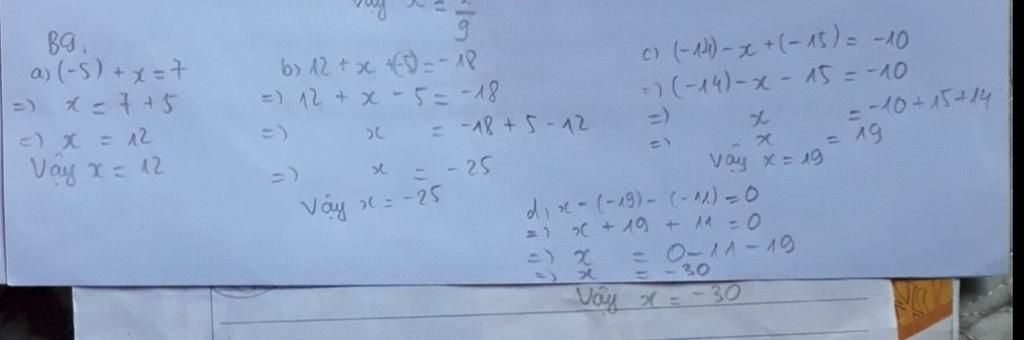 Vậy x = 2/9
B9.
a) (-5) + x = 7
=) x = 7 + 5
=) x = 12
Vậy x = 12
b) 12 + x + (-5) = -18
=) 12 + x - 5 = -18
=) x = -18 + 5 - 12
=) x = -25
Vậy x = -25
c) (-14) - x + (-15) = -10
=) (-14) - x - 15 = -10
=) x = -10 + 15 + 14
=) x = 19
Vậy x = 19
d) x - (-19) - (-11) = 0
=) x + 19 + 11 = 0
=) x = 0 - 11 - 19
=) x = -30
Vậy x = -30